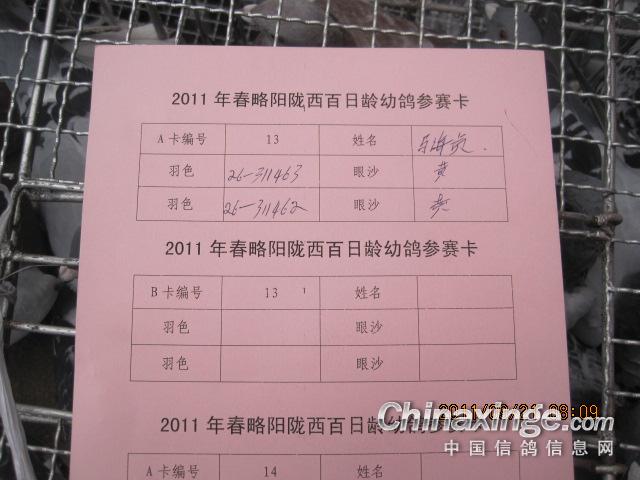 2011年春略阳陇西百日龄幼鸽参赛卡
A卡编号 13 姓名
羽色 26-311463 眼沙 黄
羽色 26-311462 眼沙
2011年春略阳陇西百日龄幼鸽参赛卡
B卡编号 13 姓名
羽色 眼沙
羽色 眼沙
2011年春略阳陇西百日龄幼鸽参赛
A卡编号 14 姓名
Chinaxinge.com
中国信鸽信息网